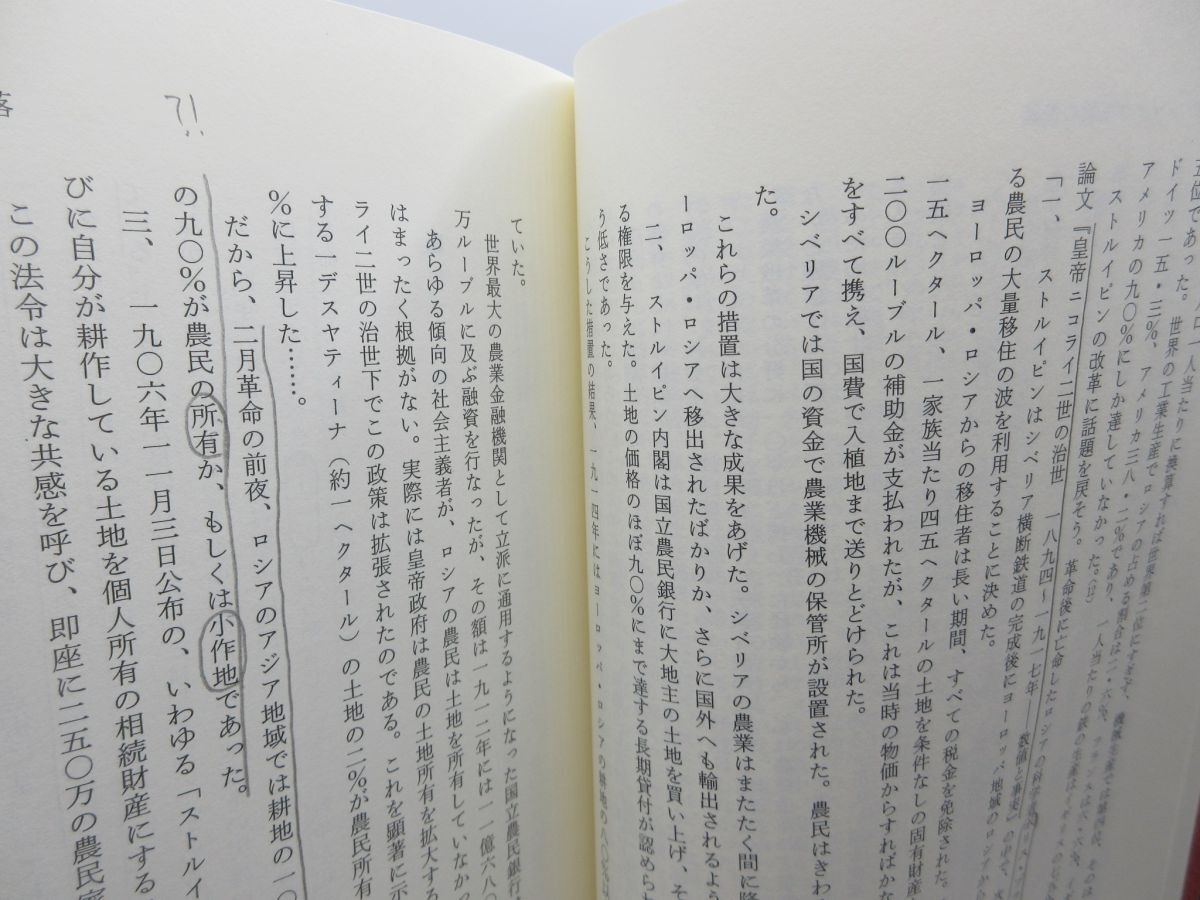 五位であった。
ドイツ一五・三%、アメリカ三八・二%であり、
アメリカの九〇%にしか達していなかった。(12)
ストルイピンの改革に話題を戻そう。革命後に亡命したロシアの科学者
論文『皇帝ニコライ二世の治世 一八九四〜一九一七年——数値と事実』の中で、
「一、ストルイピンはシベリア横断鉄道の完成後にヨーロッパ地域のロシアから
る農民の大量移住の波を利用することに決めた。
ヨーロッパ・ロシアからの移住者は長い期間、すべての税金を免除された。
一五ヘクタール、一家族当たり四五ヘクタールの土地を条件なしの固有財産
二〇〇ルーブルの補助金が支払われたが、これは当時の物価からすればかな
をすべて携え、国費で入植地まで送りとどけられた。
シベリアでは国の資金で農業機械の保管所が設置された。農民はきわ
た。
これらの措置は大きな成果をあげた。シベリアの農業はまたたく間に隆
ーロッパ・ロシアへ移出されたばかりか、さらに国外へも輸出されるよう
二、ストルイピン内閣は国立農民銀行に大地主の土地を買い上げ、そ
る権限を与えた。土地の価格のほぼ九〇%にまで達する長期貸付が認めら
う低さであった。
こうした措置の結果、一九一四年にはヨーロッパ・ロシアの耕地の八〇%は
ていた。
世界最大の農業金融機関として立派に通用するようになった国立農民銀行
万ルーブルに及ぶ融資を行なったが、その額は一九一二年には一一億六八〇
あらゆる傾向の社会主義者が、ロシアの農民は土地を所有していなか
はまったく根拠がない。実際には皇帝政府は農民の土地所有を拡大する
ライ二世の治世下でこの政策は拡張されたのである。これを顕著に示
する一デスヤティーナ(約一ヘクタール)の土地の二%が農民所有
%に上昇した……。
だから、二月革命の前夜、ロシアのアジア地域では耕地の一〇
の九〇%が農民の所有か、もしくは小作地であった。
三、一九〇六年一一月三日公布の、いわゆる「ストルイ
びに自分が耕作している土地を個人所有の相続財産にする
この法令は大きな共感を呼び、即座に二五〇万の農民家
?!
落